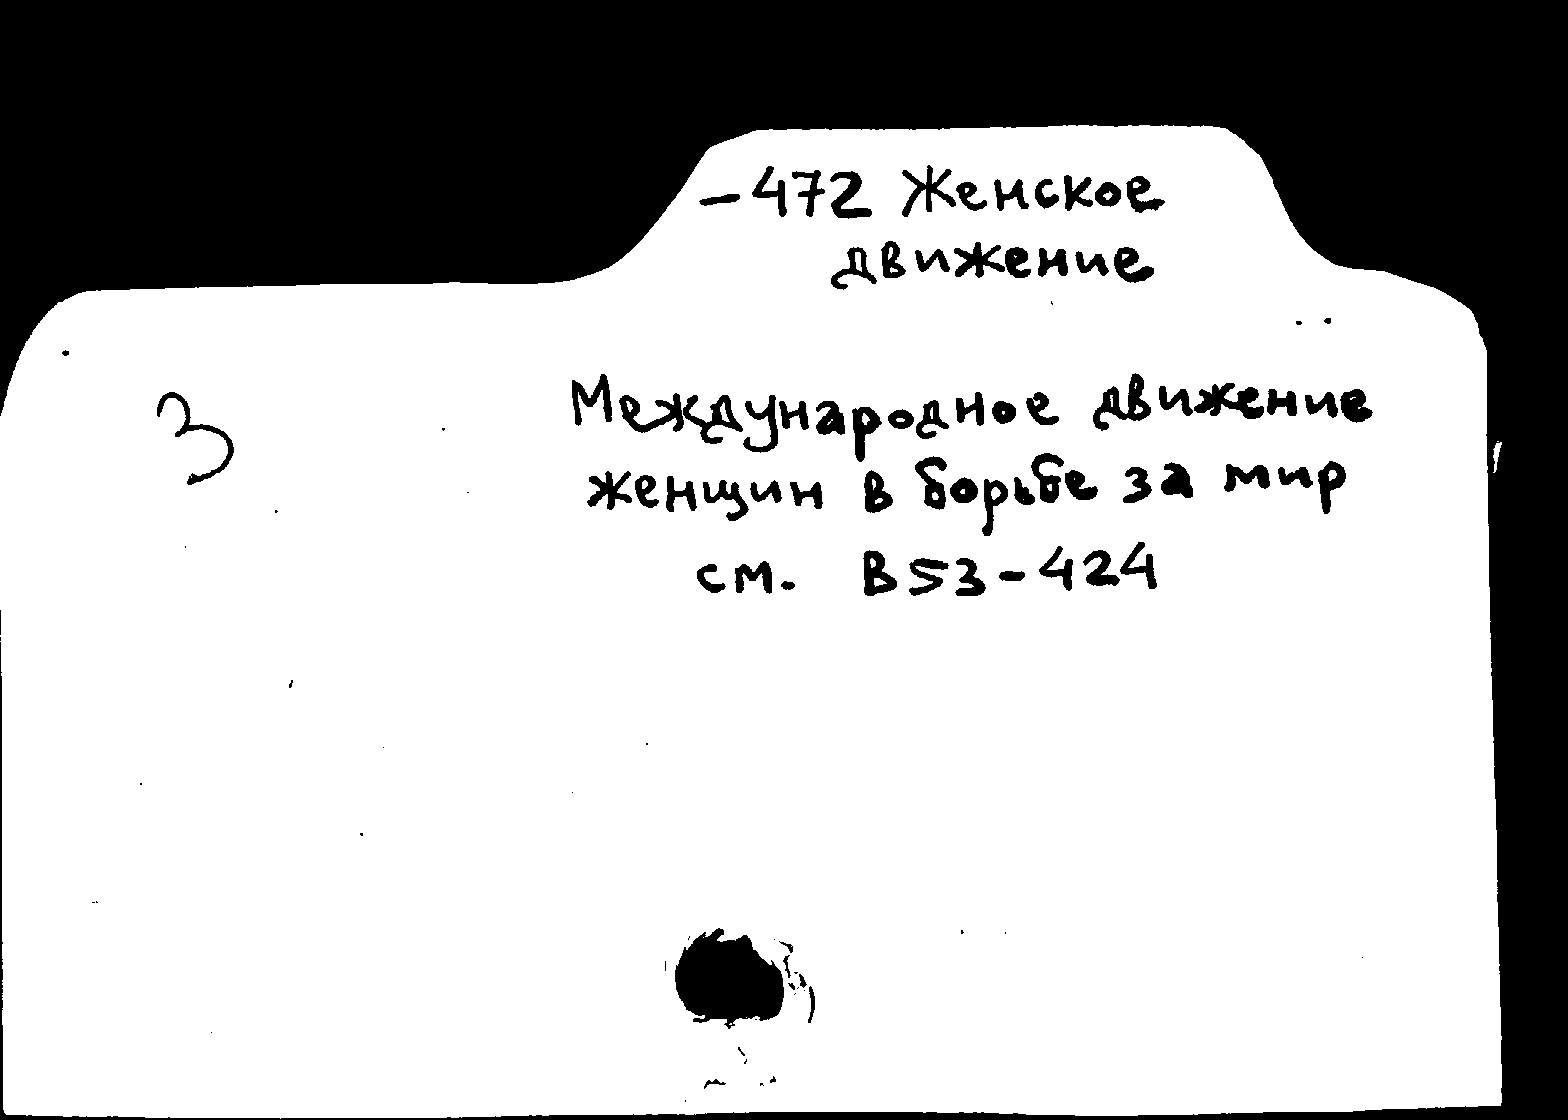 -472 Женское
движение
3
Международное движение
женщин в борьбе за мир
см. В53-424